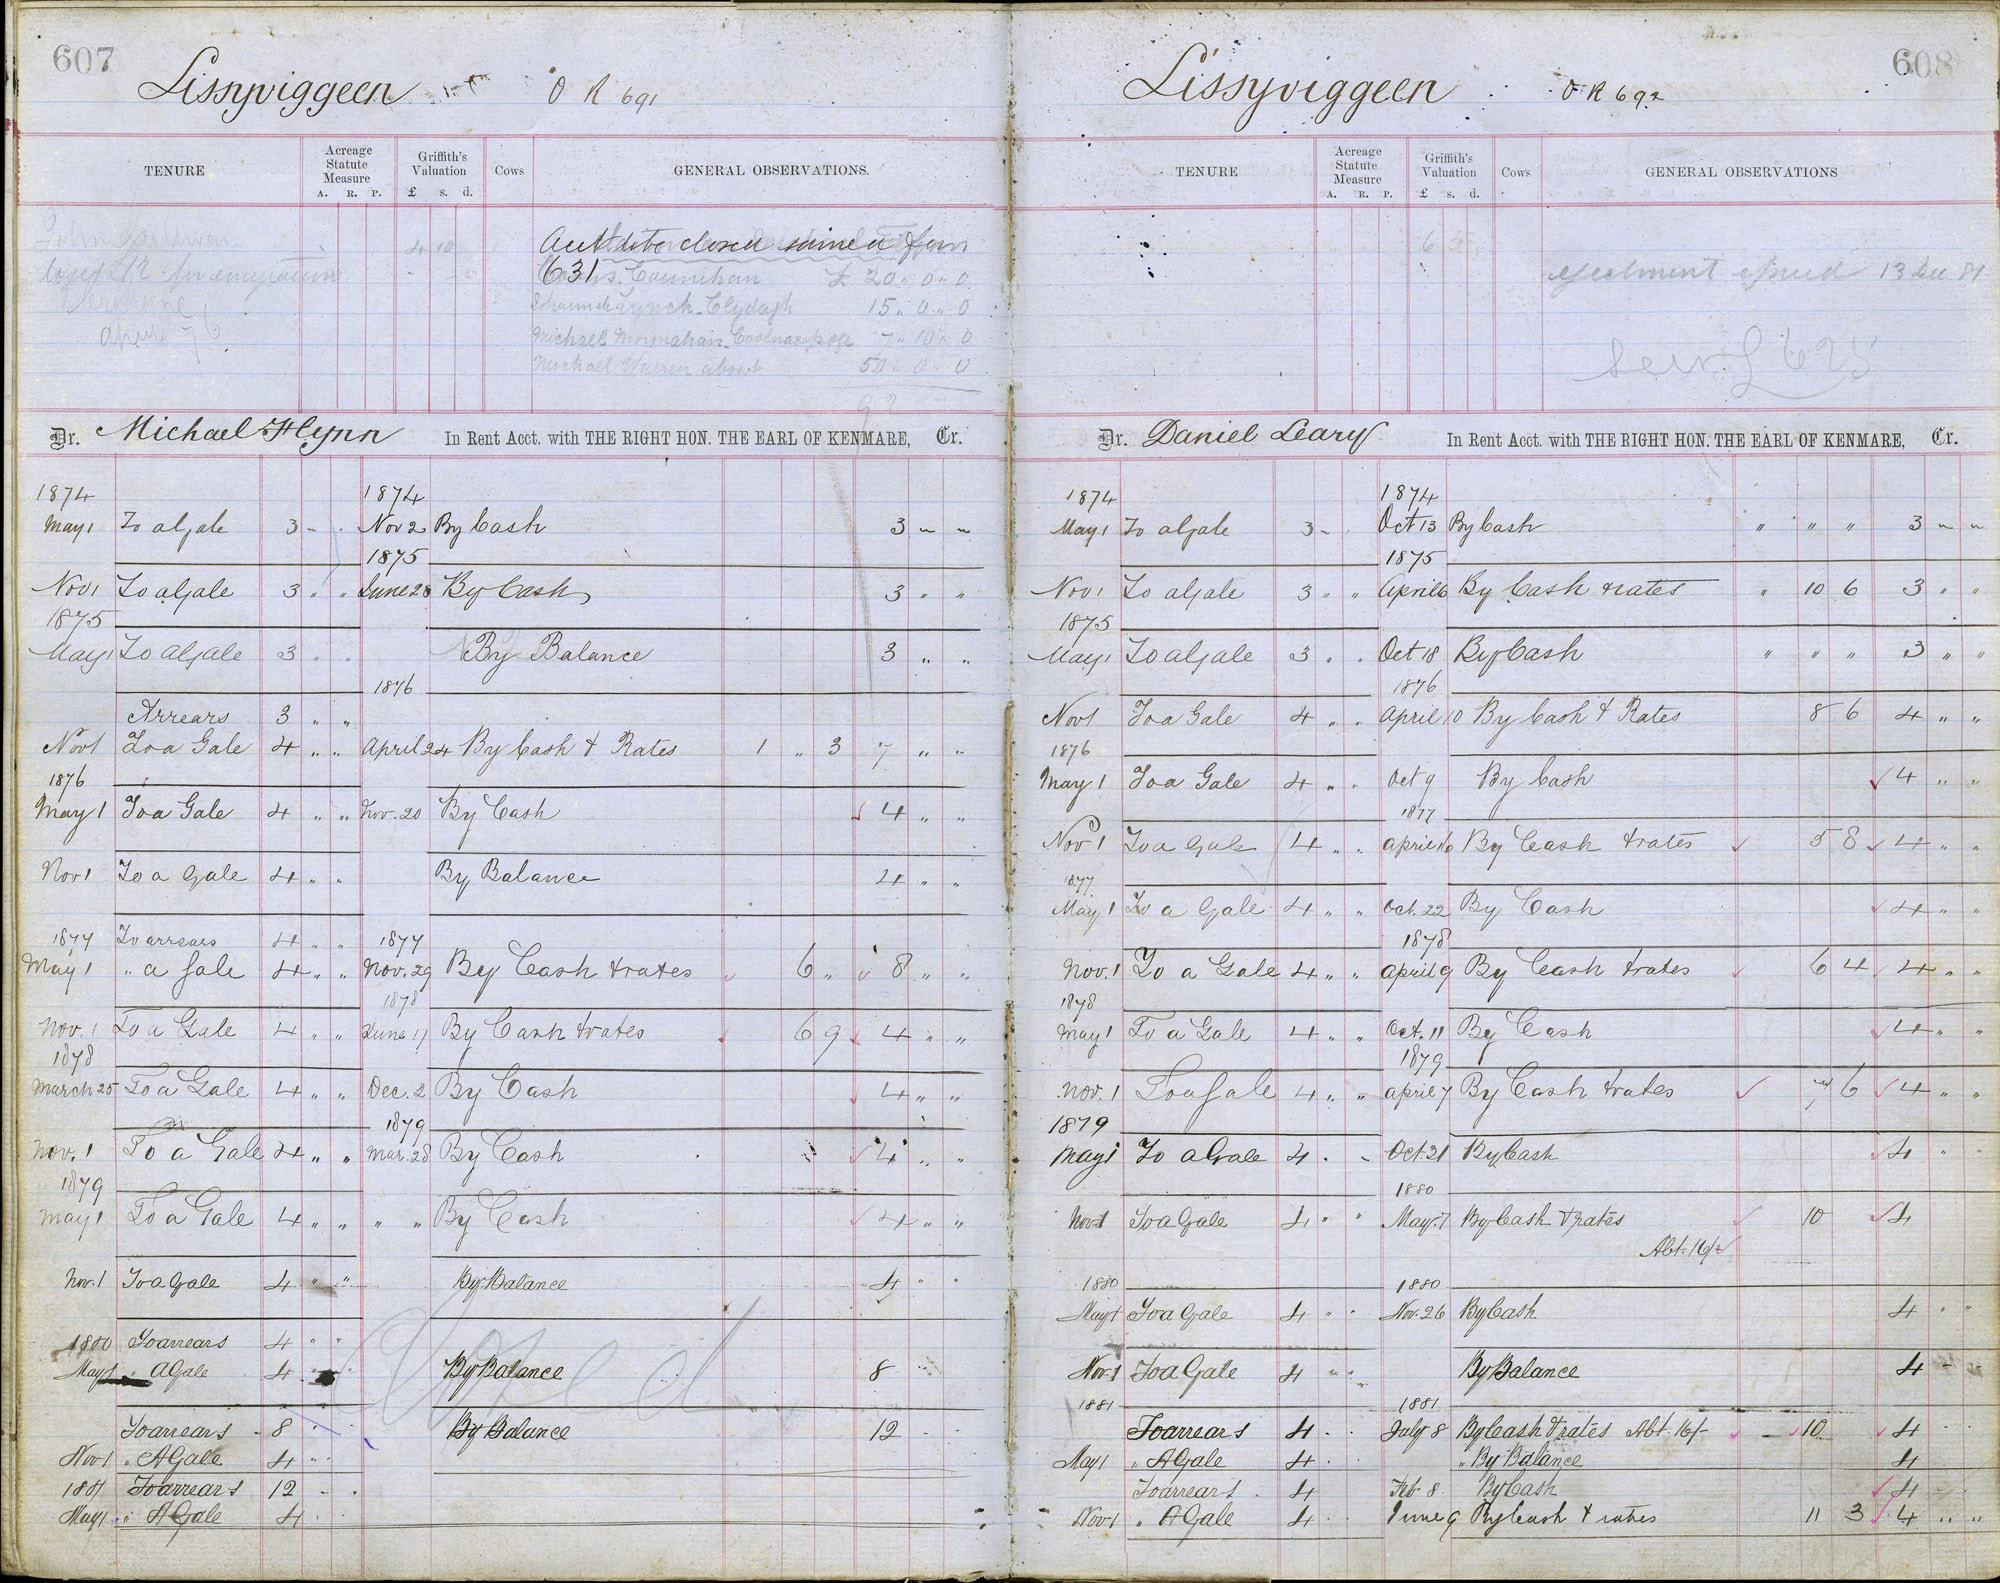 607
Lissyviggeen O R 691
TENURE Acreage Statute Measure A. R. P. Griffith's Valuation £ s. d. Cows GENERAL OBSERVATIONS.
4 10
631
Counihan £ 20 " 0 " 0
Lynch Clydagh 15 " 0 " 0
Michael Moynahan 7 " 10 " 0
Michael Warren about 50 " 0 " 0
Dr. Michael Flynn In Rent Acct. with THE RIGHT HON. THE EARL OF KENMARE, Cr.
1874 1874
May 1 To a Gale 3 - . Nov 2 By Cash 3 " "
1875
Nov 1 To a Gale 3 " " June 28 By Cash 3 " "
1875
May 1 To a Gale 3 " . By Balance 3 " "
1876
Arrears 3 " "
Nov 1 To a Gale 4 " " April 24 By Cash & Rates 1 " 3 7 " "
1876
May 1 To a Gale 4 " " Nov. 20 By Cash 4 " "
Nov 1 To a Gale 4 " " By Balance 4 " "
1877 To arrears 4 " " 1877
May 1 " a Gale 4 " " Nov. 29 By Cash & rates 6 " 8 " "
1878
Nov. 1 To a Gale 4 " " June 17 By Cash & rates 6 9 4 " "
1878
March 25 To a Gale 4 " " Dec. 2 By Cash 4 " "
1879
Nov. 1 To a Gale 4 " " Mar. 28 By Cash 4 " "
1879
May 1 To a Gale 4 " " " " By Cash 4 " "
Nov. 1 To a Gale 4 " " By Balance 4 " "
1880 To arrears 4 " "
May 1 " A Gale 4 By Balance 8
To arrears 8 By Balance 12
Nov 1 " A Gale 4 " "
1881 To arrears 12 - .
May 1 " A Gale 4 . .
608
Lissyviggeen O R 692
TENURE Acreage Statute Measure A. R. P. Griffith's Valuation £ s. d. Cows GENERAL OBSERVATIONS
6 5
ejectment issued 13 Dec 81
625
Dr. Daniel Leary In Rent Acct. with THE RIGHT HON. THE EARL OF KENMARE, Cr.
1874 1874
May 1 To a Gale 3 - . Oct 13 By Cash " " " 3 " "
1875
Nov 1 To a Gale 3 " " April 6 By Cash & rates " 10 6 3 " "
1875
May 1 To a Gale 3 " . Oct 18 By Cash " " " 3 " "
1876
Nov 1 To a Gale 4 " . April 10 By Cash & Rates 8 6 4 " "
1876
May 1 To a Gale 4 " . Oct 9 By Cash 4 " "
1877
Nov 1 To a Gale 4 " . April 16 By Cash & rates 5 8 4 " "
1877
May 1 To a Gale 4 " " Oct. 22 By Cash 4 " "
1878
Nov. 1 To a Gale 4 " " April 9 By Cash & rates 6 4 4 " "
1878
May 1 To a Gale 4 " " Oct. 11 By Cash 4 " "
1879
Nov. 1 To a Gale 4 " " April 7 By Cash & rates 7 6 4 " "
1879
May 1 To a Gale 4 . - Oct. 21 By Cash 4 " "
1880
Nov 1 To a Gale 4 " " May 7 By Cash & rates 10 4
Abt. 16/-
1880 1880
May 1 To a Gale 4 " " Nov. 26 By Cash 4 " "
Nov. 1 To a Gale 4 " " By Balance 4 -
1881 1881
To arrears 4 . . July 8 By Cash & rates Abt. 16/- - 10 4
May 1 " A Gale 4 . . " By Balance 4
To arrears 4 Feb 8 By Cash 4
Nov 1 " A Gale 4 . . June 9 By Cash & rates 11 3 4 " "